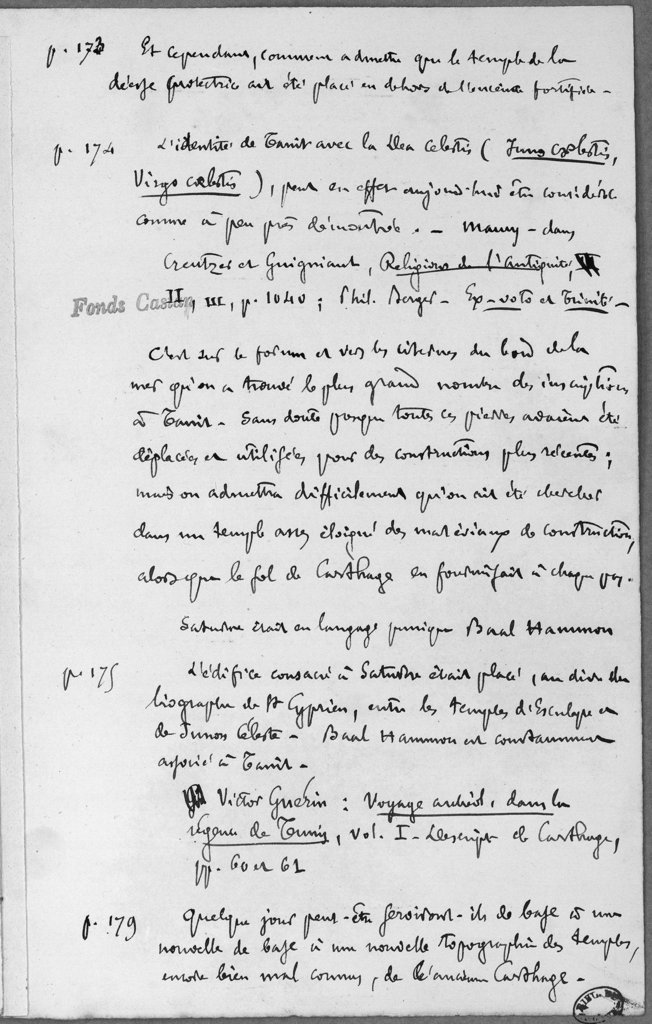 p. 173 Et cependant, comment admettre que le temple de la
déesse protectrice ait été placé en dehors de l'enceinte fortifiée -
p. 174 L'identité de Tanit avec la Dea Cœlestis (Juno cœlestis,
Virgo cœlestis), peut en effet aujourd'hui être considérée
comme à peu près démontrée. - Maury - dans
Creutzer et Guigniaut, Religions de l'antiquité,
Fonds II, III, p. 1040 ; Phil. Berger - Ex-voto et Trinité -
C'est sur le forum et vers les citernes du bord de la
mer qu'on a trouvé le plus grand nombre des inscriptions
à Tanit. Sans doute presque toutes ces pierres avaient été
déplacées et utilisées pour des constructions plus récentes ;
mais on admettra difficilement qu'on ait été chercher
dans un temple assez éloigné des matériaux de construction,
alors que le sol de Carthage en fournissait à chaque pas.
Saturne était en langage punique Baal Hammon
p. 175 L'édifice consacré à Saturne était placé, au dire du
biographe de St Cyprien, entre les temples d'Esculape et
de Junon Céleste - Baal Hammon est constamment
associé à Tanit -
Victor Guérin : Voyage archéol. dans la
régence de Tunis, vol. I - Descript. de Carthage,
pp. 60 et 61
p. 179 Quelque jour peut-être serviront-ils de base à une
nouvelle de base à une nouvelle topographie des temples,
encore bien mal connus, de l'ancienne Carthage -